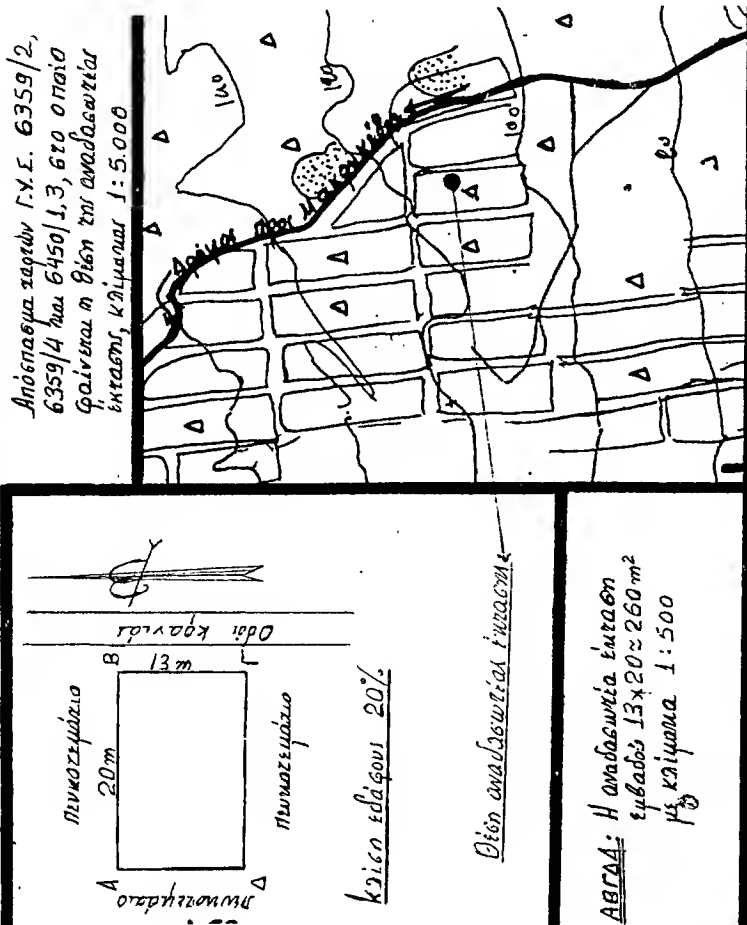 Απόσπασμα χαρτών Γ.Υ.Σ. 6359/2,
6359/4 και 6450/1,3, στο οποίο
φαίνεται η θέση της αναδασωτέας
έκτασης, κλίμακας 1:5.000
Δρόμος προς
100
100
Οδός Κρανιάς
Πευκοτεμάχιο
20m
13m
Α
Β
Γ
Δ
Πευκοτεμάχιο
Πευκοτεμάχιο
κλίση εδάφους 20%
Θέση αναδασωτέας έκτασης
ΑΒΓΔΑ: Η αναδασωτέα έκταση
εμβαδού 13x20≈260m²
με κλίμακα 1:500